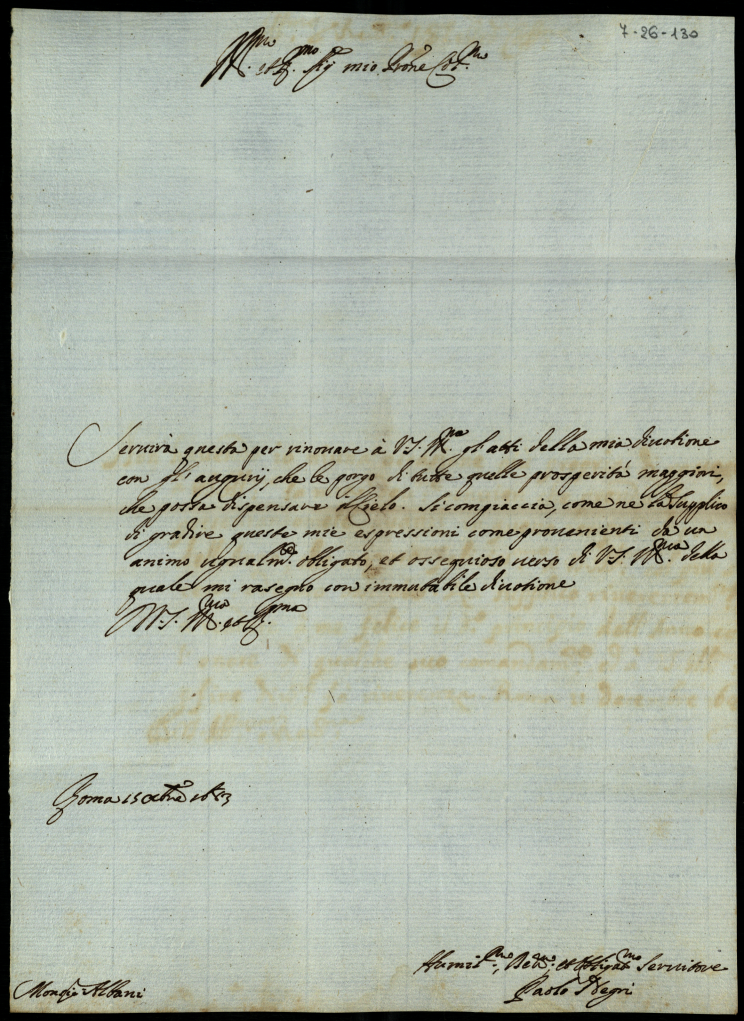 7-26-130
Ill.mo et R.mo Sig.r mio P̃rone Col.mo
Servirà questa per rinovare à V.S. Ill.ma gl'atti della mia divotione
con gl'augurij, che le porgo di tutte quelle prosperità maggiori,
che possa dispensare il Cielo. Si compiaccia, come ne la supplico
di gradire queste mie espressioni come provenienti da un
animo ugualm.te obligato, et ossequioso verso di V.S. Ill.ma della
quale mi rasegno con immutabile divotione
Di V.S. Ill.ma et R.ma
Roma 15
Humil.mo, Dev.mo et Obligat.mo Servitore
Paolo Negri
Monsig.r Albani